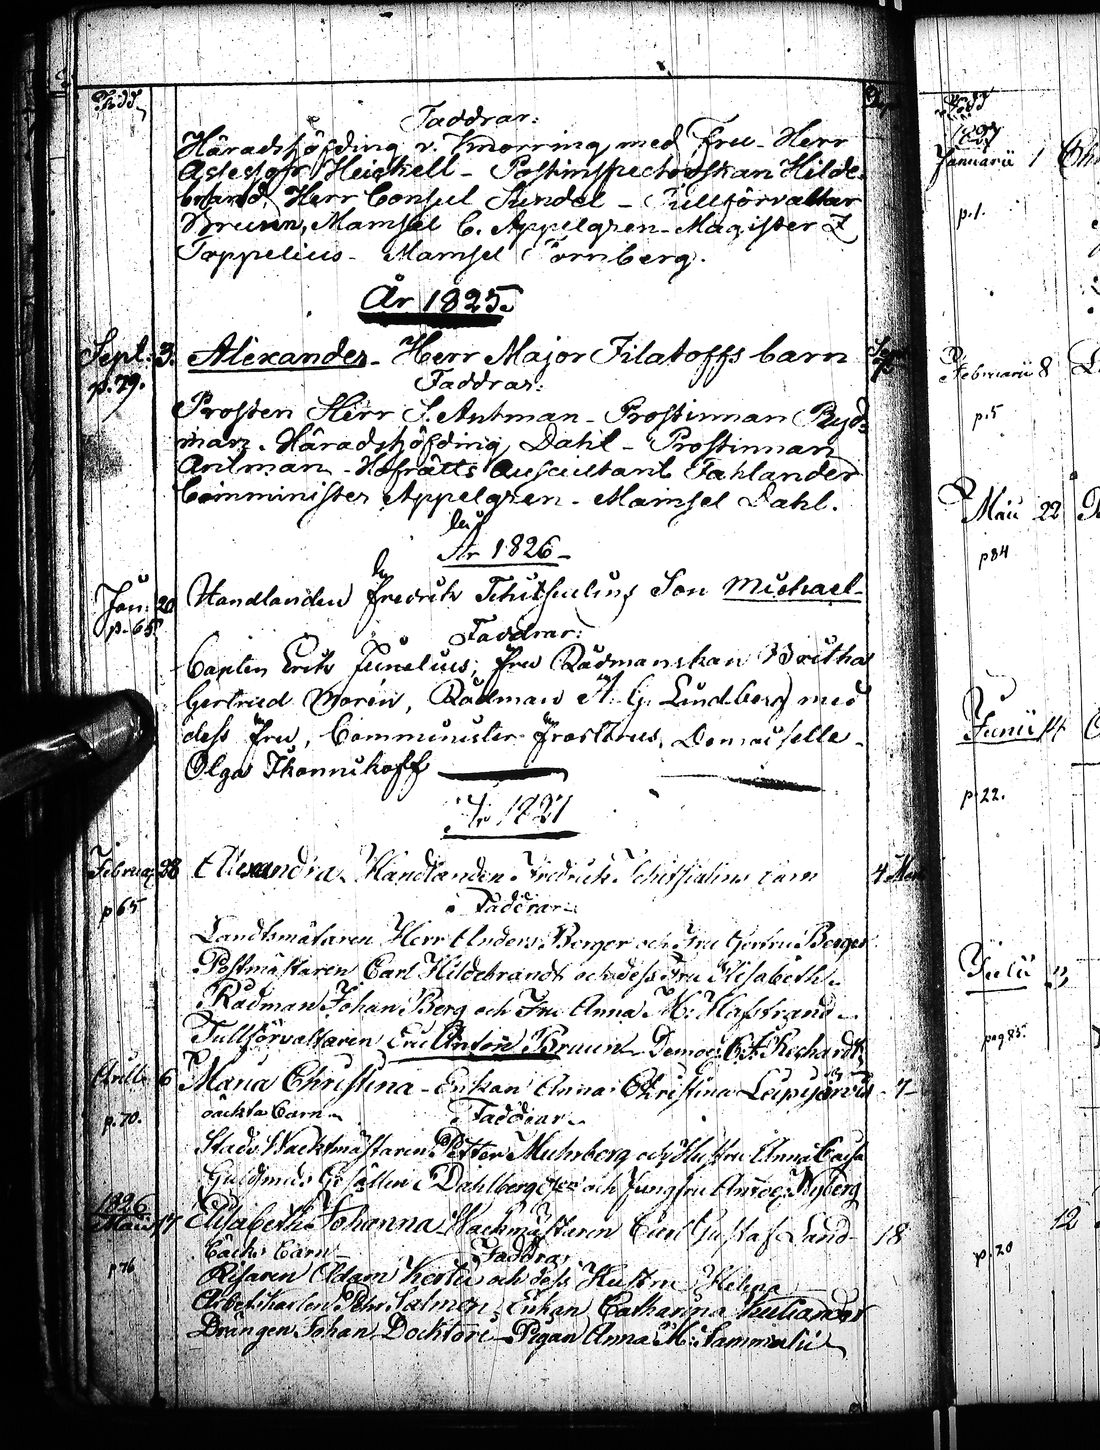 Född
Faddrar:
Häradshöfding v. Knorring med Fru - Herr
Assessor Heickell - Postinspectorskan Hilde-
brand, Herr Consul Sundel - Tullförvaltar
Bruun, Mamsel C. Appelgren - Magister Z
Toppelius - Mamsel Törnberg.
År 1825.
Sept. 3. Alexander - Herr Major Filatoffs barn Sept. 7
p. 79. Faddrar:
Prosten Herr S. Antman - Prostinnan Ryd-
man - Häradshöfding Dahl - Prostinnan
Antman - Hofrätts Auscultant Fahlander
Comminister Appelgren - Mamsel Dahl.
År 1826 -
Jan: 20 Handlanden Fredrik Schitsulins Son Michael -
p. 65. Faddrar:
Capten Erik Junelius, Fru Rådmanskan Britha
Gertrud Morin, Rådman A. G. Lindberg med
dess Fru, Comminister Frosterus, Demoiselle
Olga Ikonnikoff
År 1827
Februar. 28 Alexandra - Handlanden Fredrik Schitsulins barn 4 Mars
p 65 Faddrar:
Landtmätaren Herr Anders Berger och Fru Gertru Berger
Postmästaren Carl Hildebrandt och dess Fru Elisabeth
Rådman Johan Berg och Fru Anna M: Hafstrand
Tullförvaltaren Eric Anton Bruun - Demois: C. F. Richardt
6 Maria Christina - Enkan Anna Christina Leipijärvis - 7 -
p. 70. oäkta Barn - Faddrar -
Stads Wacktmästaren Petter Muhrberg och Hustru Anna Caisa
Guldsmeds Gesällen Dahlberg och Jungfru Nyberg
1826
Maii 17 Elisabeth Johanna Wacktmästaren Carl Gustaf Sand- 18
p 76 bäcks Barn - Faddrar
Adam och dess Hustru Helena
Arbetskarlen Pehr Salmen, Enkan Catharina
Drängen Johan Docktori - Pigan Anna M: Sammalii
Född
1809
Januarii 1
p. 1.
Februarii 8
p. 5
Maii 22
p 84
Junii 14
p. 22.
Julii 3,
pag 85.
12
p. 20